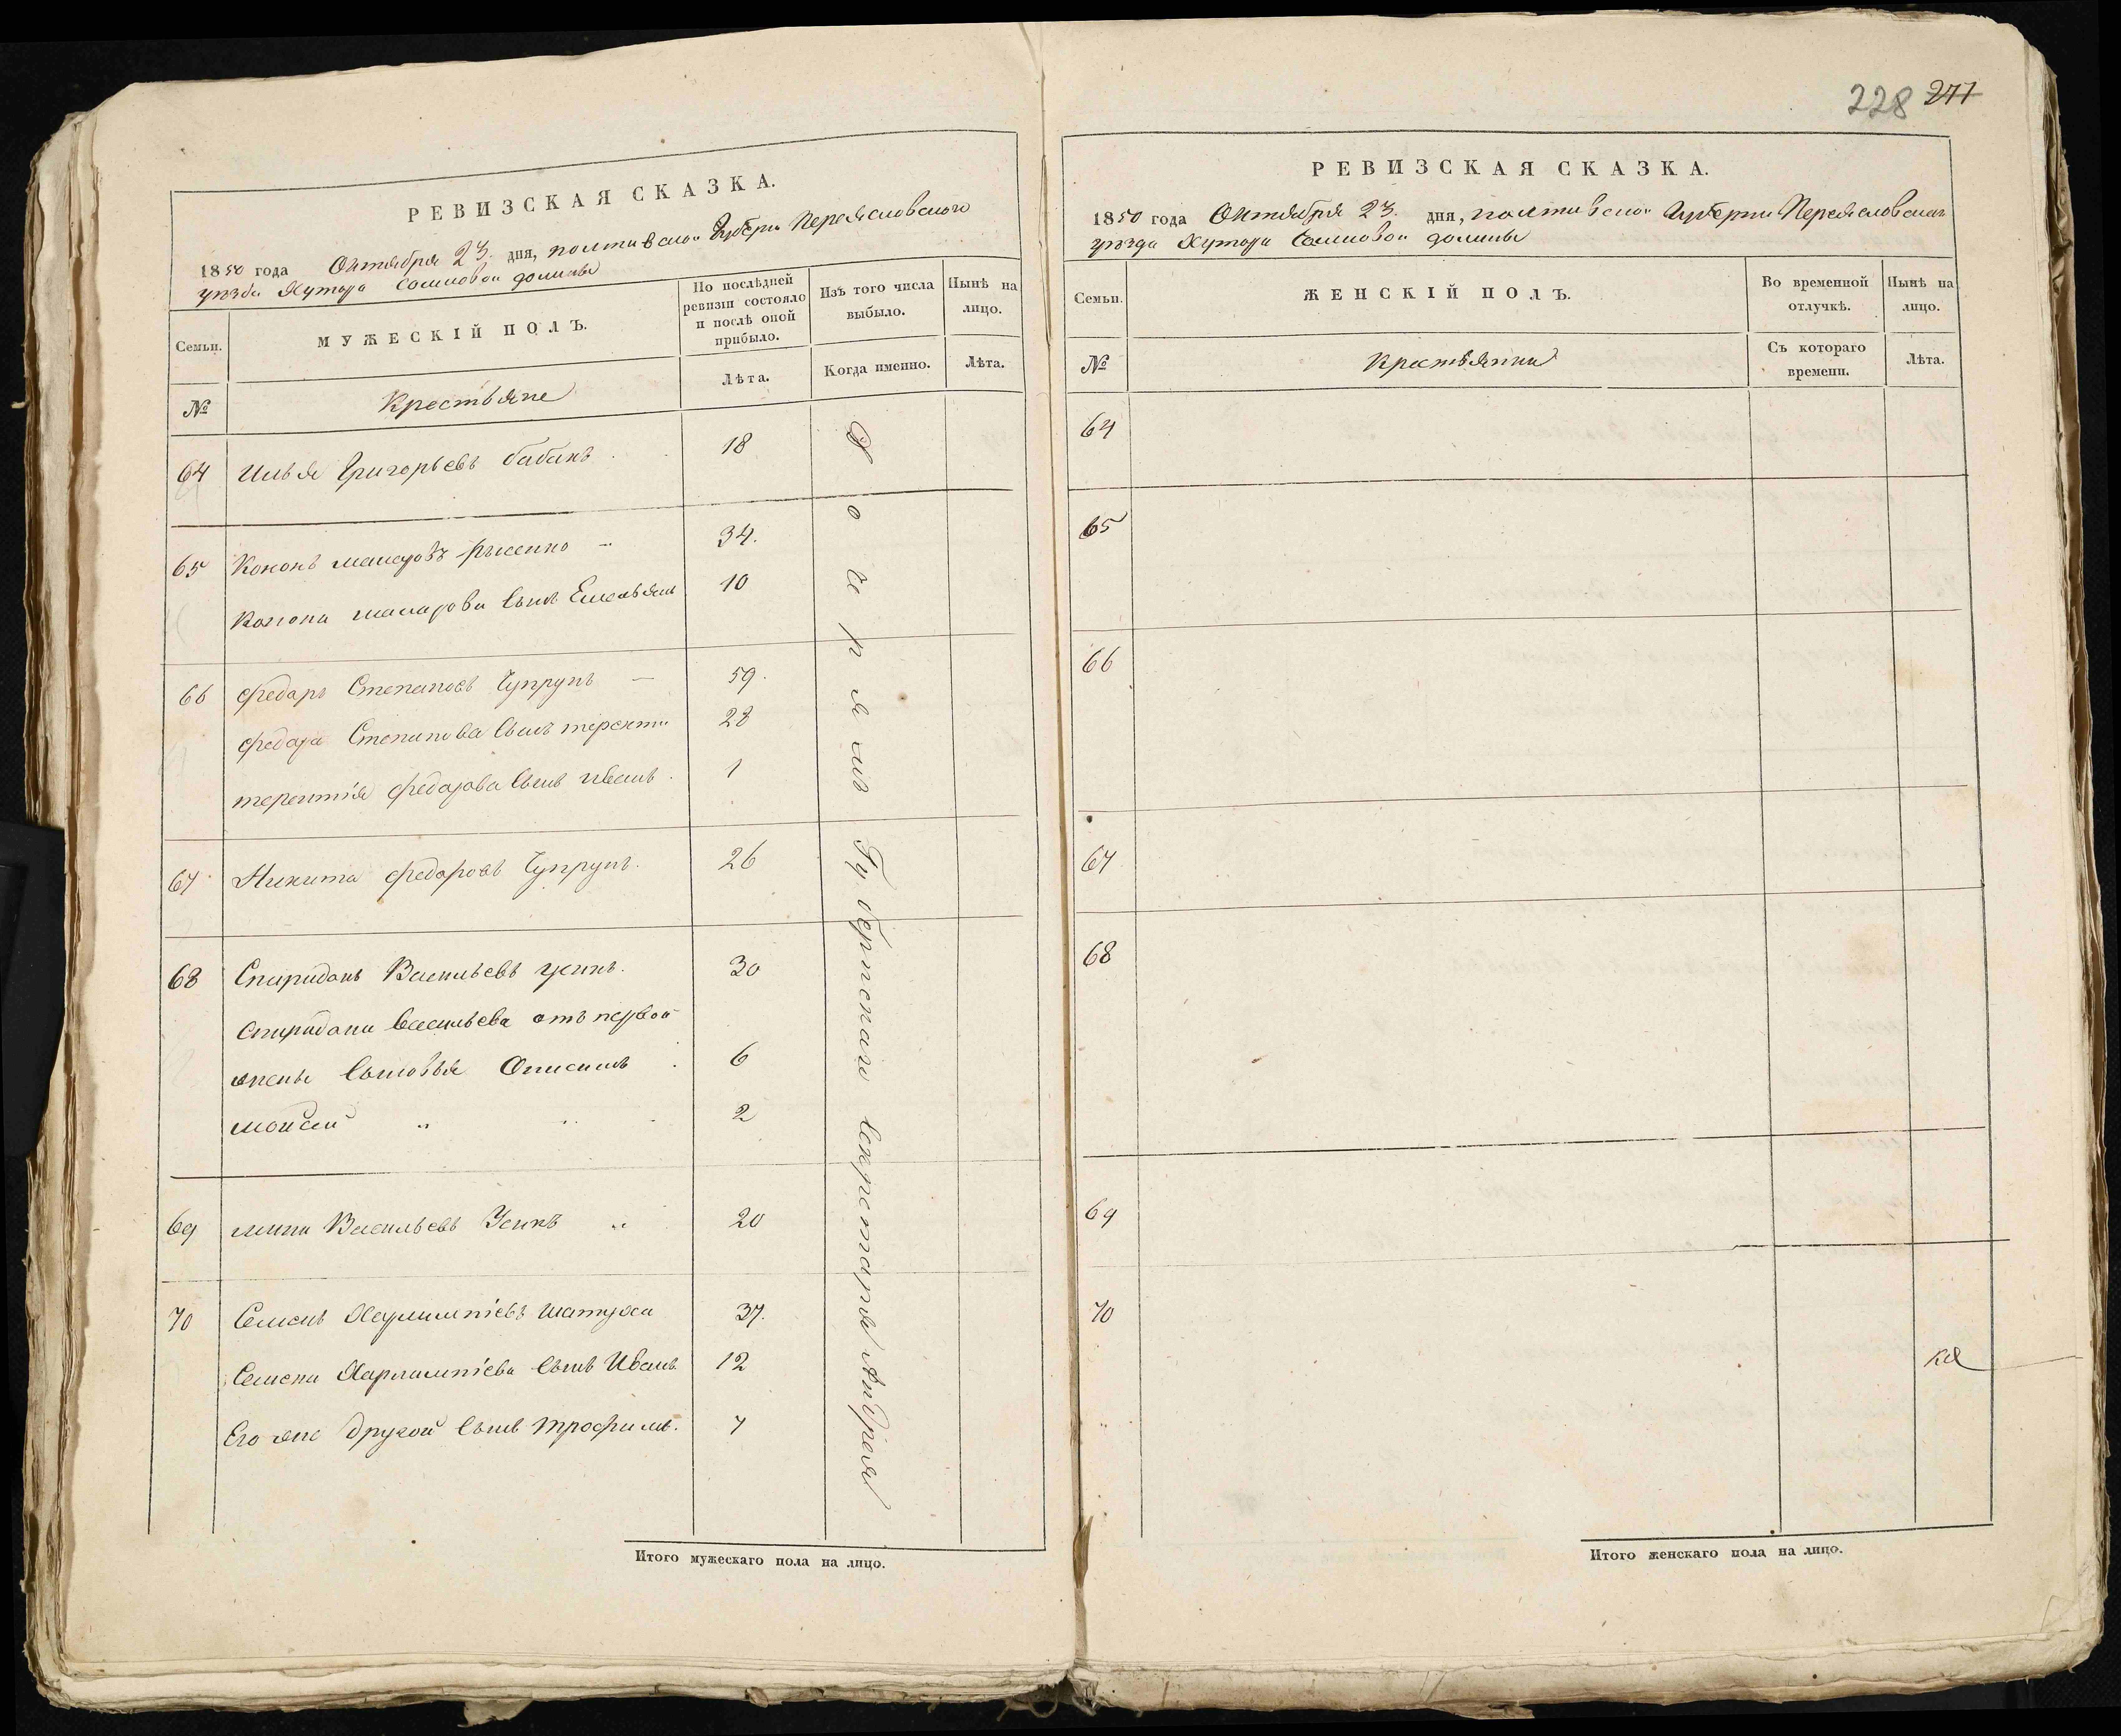 228 277
РЕВИЗСКАЯ СКАЗКА.
1850 года Октября 23. дня, полтавской Губерни Переясловского
уѣзда Хутора Сомиовои долины
Семьи.
МУЖЕСКІЙ ПОЛЪ.
По послѣдней ревизіи состояло и послѣ оной прибыло.
Изъ того числа выбыло.
Нынѣ на лицо.
№
Крестьяне
Лѣта.
Когда именно.
Лѣта.
64 Илья Григорьевъ бабакъ 18
65 Кононъ макаровъ 34.
Конона макарова сынъ Емельянъ 10
66 Федаръ Степановъ Чупрунъ 59.
Федара Степанова сынъ терентй 28
терентія федарова сынъ иванъ 1
67 Никита Федаровъ Чупрунъ. 26
68 Спиридонъ Васильевъ усикъ. 30
Спиридона васильева отъ первой
жены сыновья Онисимъ 6
мойсей „ „ 2
69 мина Васильевъ Усикъ „ 20
70 Семенъ Харлампіевъ шатуха 37.
Семена Харлампіева сынъ Иванъ 12
Его же другой сынъ трофимъ. 7
Дворямъ Губернскаго секретаря Андрея
Итого мужескаго пола на лицо.
РЕВИЗСКАЯ СКАЗКА.
1850 года Октября 23. дня, полтавской Губерни Переясловского
уѣзда Хутора Сомиовои долины
Семьи.
ЖЕНСКІЙ ПОЛЪ.
Во временной отлучкѣ.
Нынѣ на лицо.
№
Крестьянки
Съ котораго времени.
Лѣта.
64
65
66
67
68
69
70
ка
Итого женскаго пола на лицо.